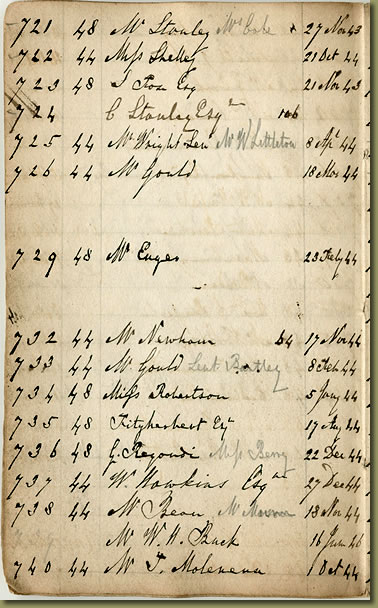 721 48 Mr Stanley Mr Cole 27 Nov 43
722 44 Miss Shelley 21 Oct 44
723 48 J Fox Esq 21 Nov 43
724 C Stanley Esqre
725 44 Mr Wright Senr Mr W Littleton 8 Apl 44
726 44 Mr Gould 18 Mar 44
729 48 Mr 23 Feby 44
732 44 Mr Newham 17 Nov 44
733 44 Mr Gould Lent Bartley 8 Feb 44
734 48 Miss Robertson 5 Jany 44
735 48 Fitzherbert Esq 17 Aug 44
736 48 G Regondi Miss Berry 22 Dec 44
737 44 W. Hawkins Esqre 27 Dec 44
738 44 Mr Bean Mr 18 Nov 44
Mr W. H. Buck 16 June 46
740 44 Mr T. Moleneux 1 Oct 44